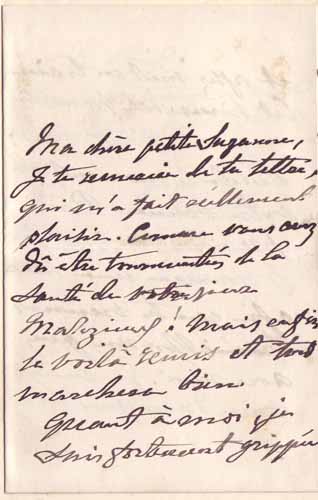 Ma chère petite Suzanne,
Je te remercie de ta lettre,
qui m'a fait réellement
plaisir. Comme vous avez
dû être tourmentés de la
santé de votre
! mais enfin
le voilà remis et tout
marchera bien
Quant à moi je
suis fortement grippée